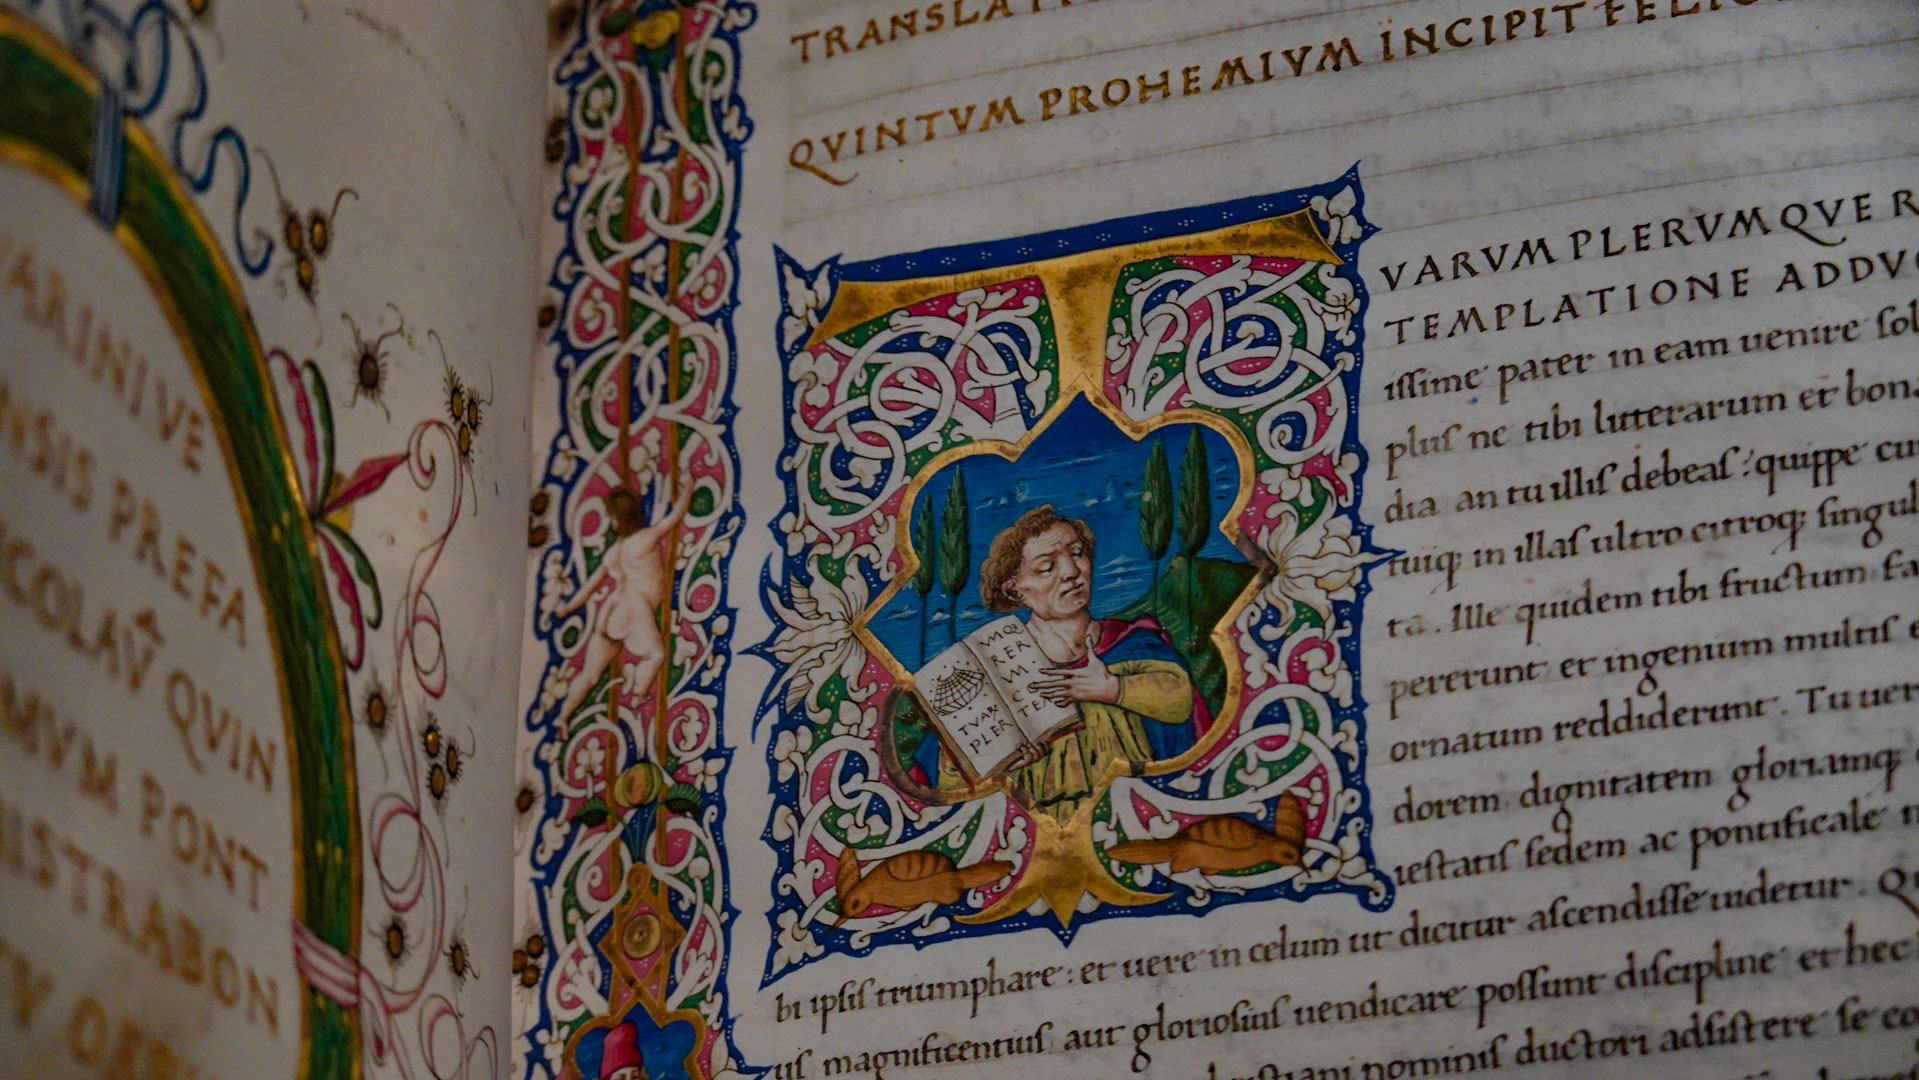 VARINI VE
NSIS PREFA
ICOLAV̂ QVIN
MVM PONT
STRABON
TRANSLATI
QVINTVM PROHEMIVM INCIPIT FELIC
T
VARVM PLERVMQVE R
TEMPLATIONE ADDVC
issime pater in eam uenire sol
plus ne tibi litterarum et bona
dia an tu illis debeas? quippe cu
tuiq; in illas ultro citroq; singul
ta. Ille quidem tibi fructum fa
pererunt et ingenium multis e
ornatum reddiderunt. Tu uer
dorem dignitatem gloriamq;
iestatis sedem ac pontificale
bi ipsis triumphare: et uere in celum ut dicitur ascendisse uidetur. Q
us magnificentius aut gloriosius uendicare possunt discipline et hec
stiani nominis ductori adsistere se co
TVAR
PLER
VMQ
RER
VM
C
TEM